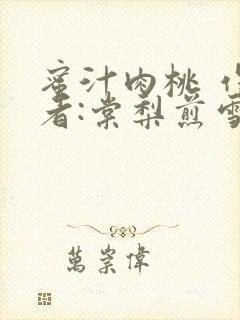 蜜汁肉桃 作
者:棠梨煎雪
萬崇偉